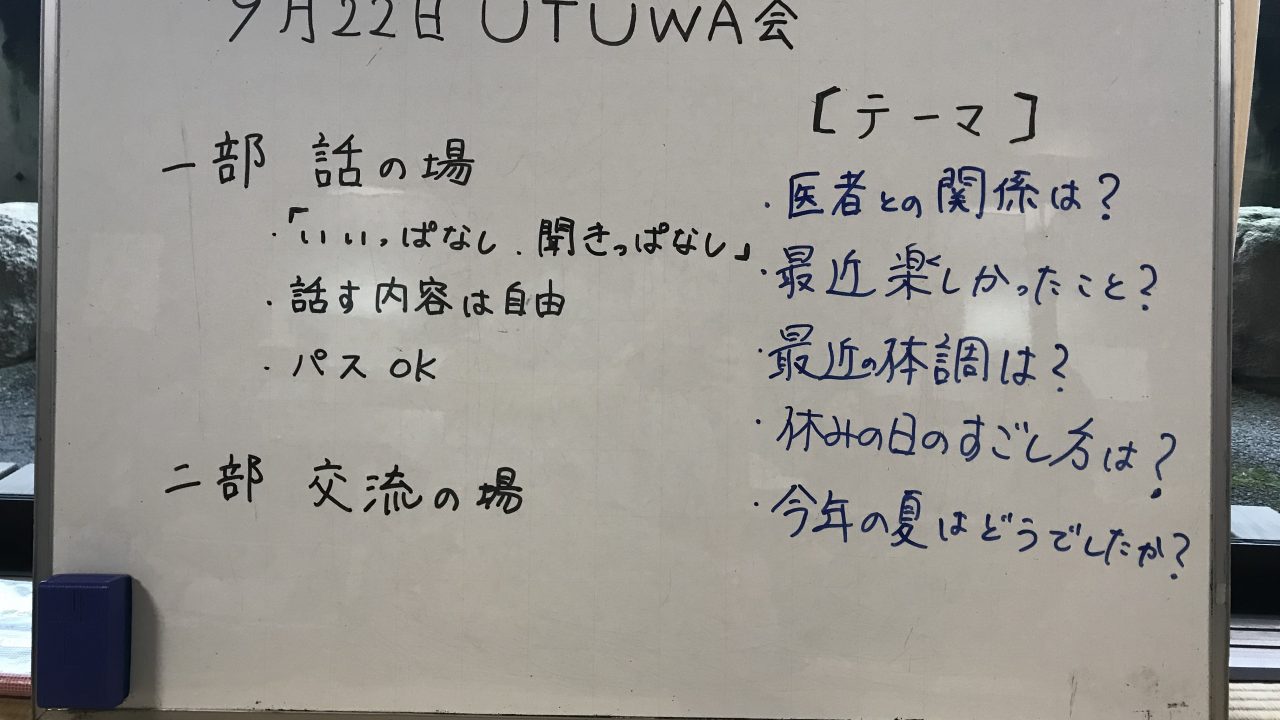 9月22日 UTUWA会
一部 話の場
・「いいっぱなし．聞きっぱなし」
・話す内容は自由
・パス OK
二部 交流の場
[テーマ]
・医者との関係は？
・最近楽しかったこと？
・最近の体調は？
・休みの日のすごし方は？
・今年の夏はどうでしたか？